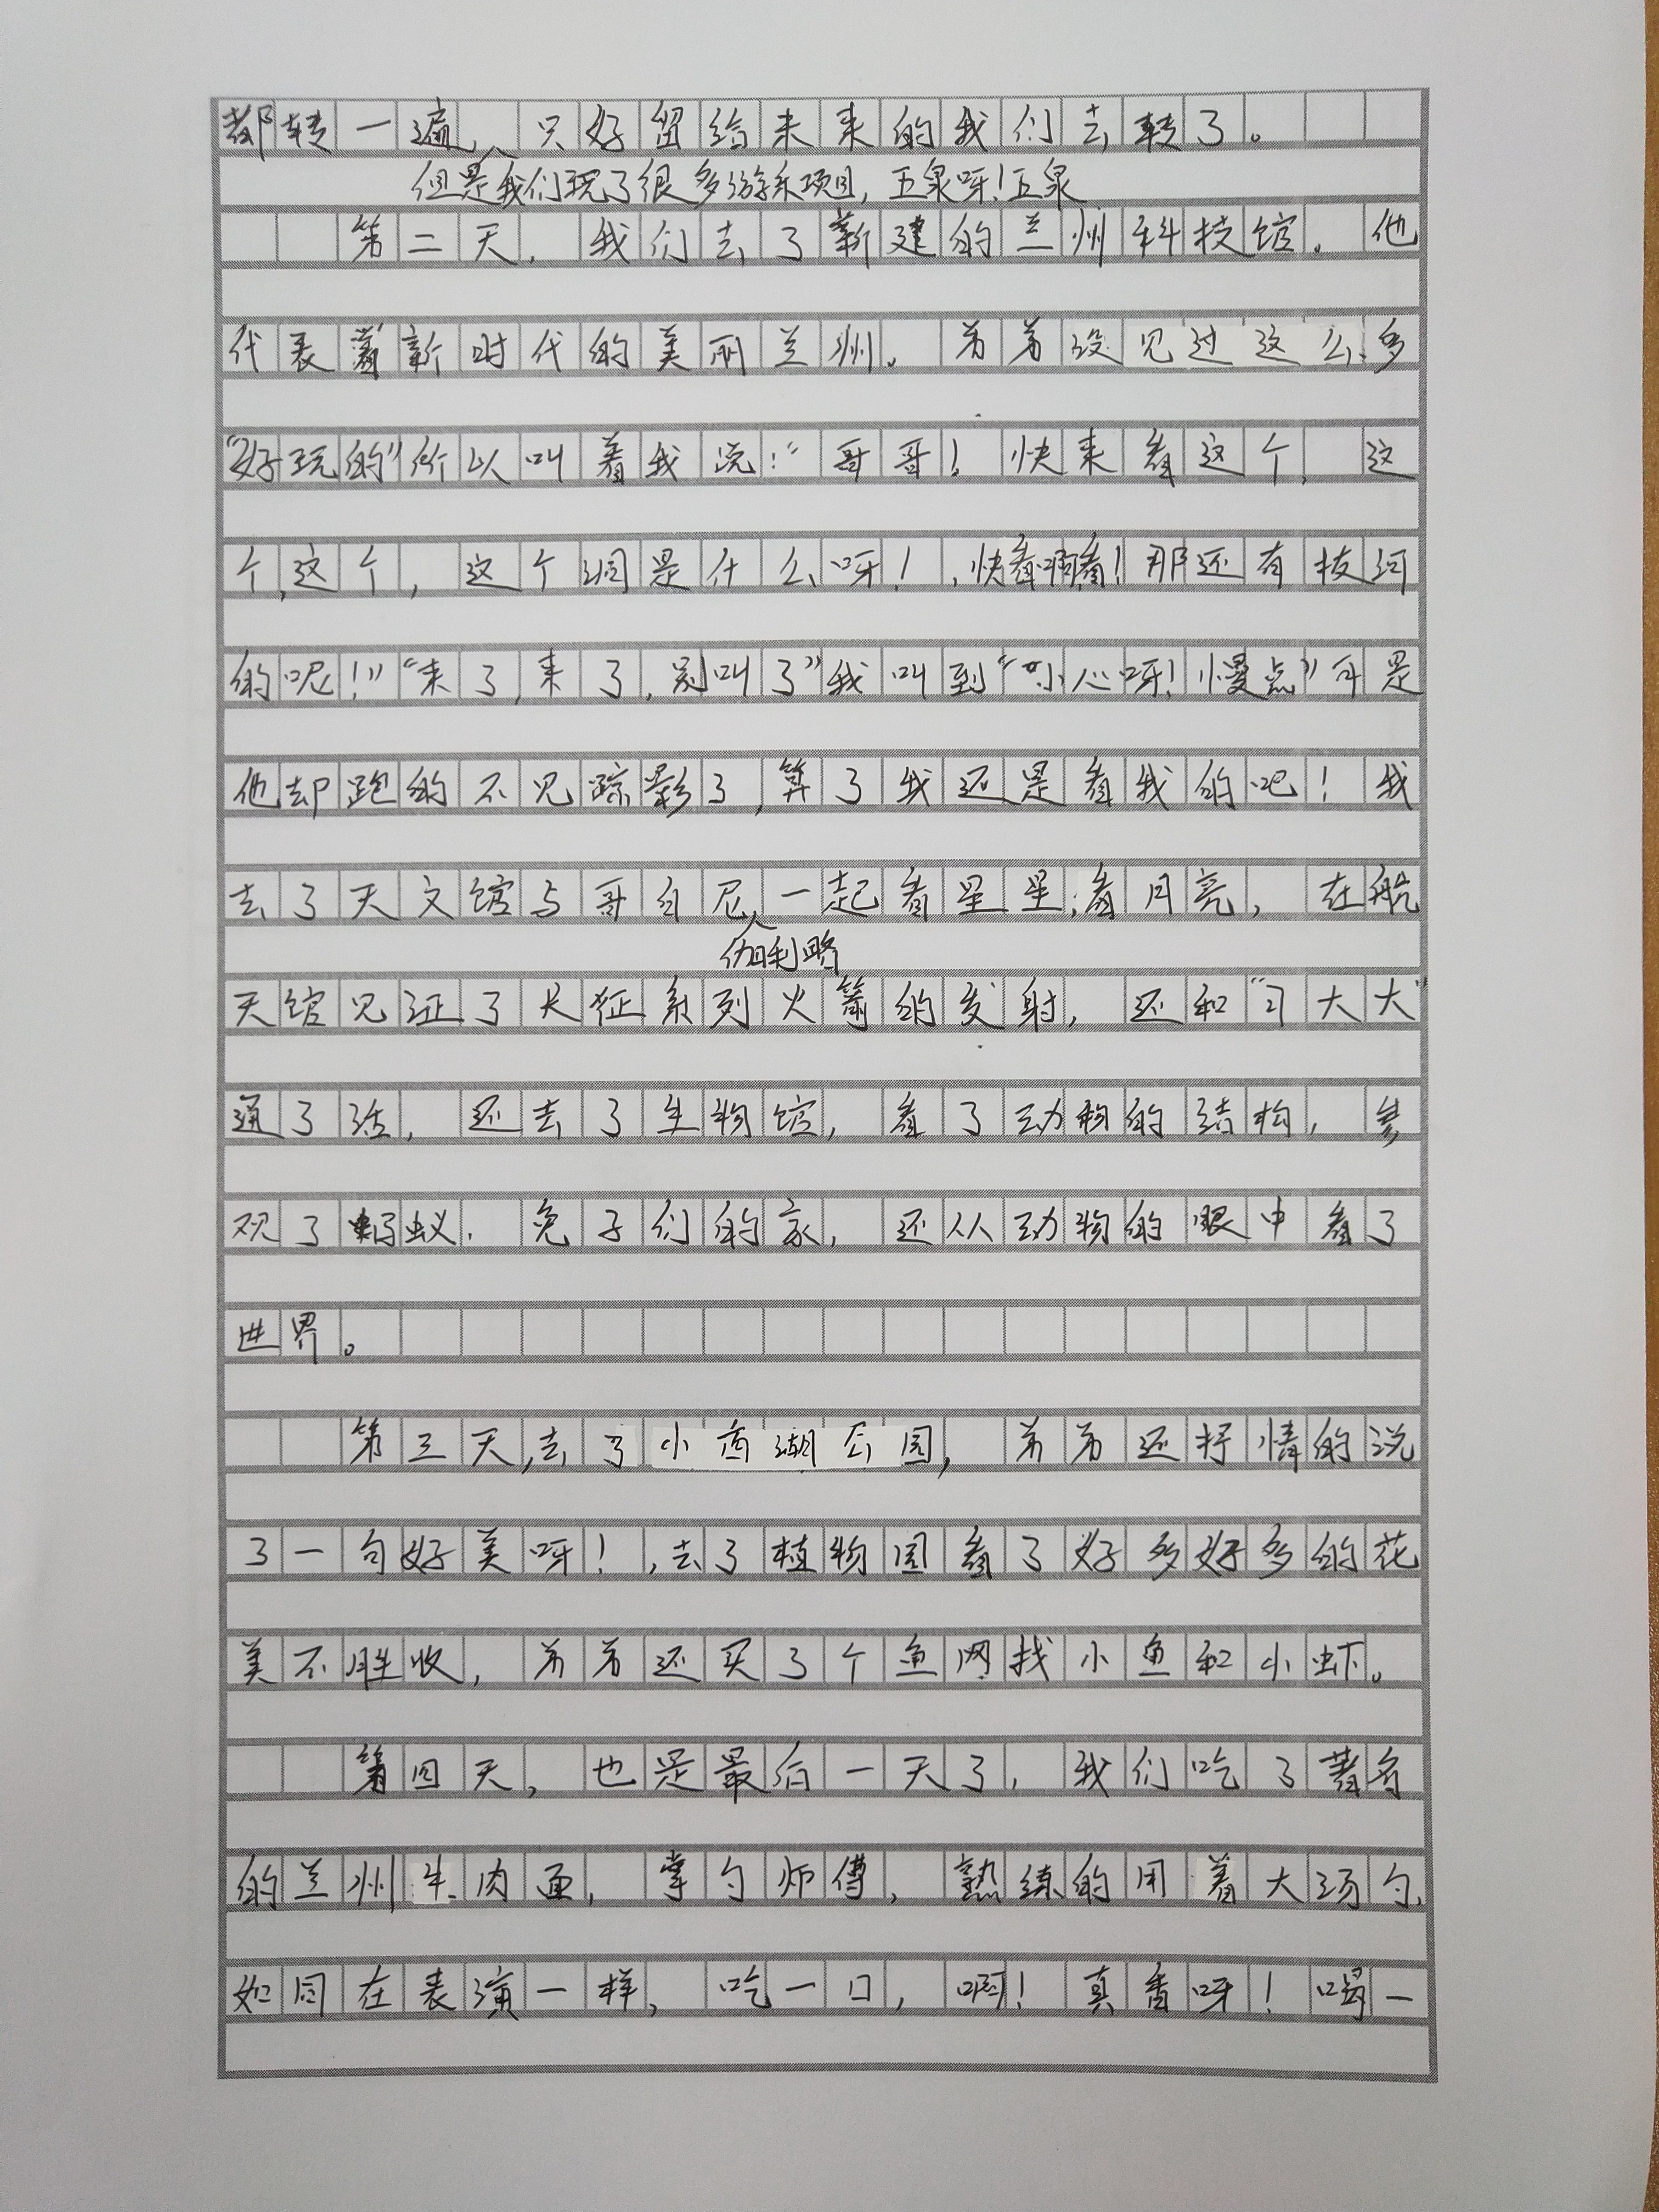 都转一遍，只好留给未来的我们去转了。
但是我们玩了很多游乐项目，五泉呀！五泉
第二天，我们去了新建的兰州科技馆。他
代表着新时代的美丽兰州。弟弟没见过这么多
“好玩的”所以叫着我说：“哥哥！快来看这个，这
个，这个，这个洞是什么呀！，快看啊看！那还有技河
的呢！”“来了，来了，别叫了”我叫到“小心呀！慢点”可是
他却跑的不见踪影了，算了我还是看我的吧！我
去了天文馆与哥白尼一起看星星，看月亮，在航
伽利略
天馆见证了长征系列火箭的发射，还和“习大大”
通了话，还去了生物馆，看了动物的结构，参
观了蚂蚁．兔子们的家，还从动物的眼中看了
世界。
第三天，去了小西湖公园，弟弟还抒情的说
了一句好美呀！，去了植物园看了好多好多的花
美不胜收，弟弟还买了个鱼网找小鱼和小虾。
第四天，也是最后一天了，我们吃了著名
的兰州牛肉面，掌勺师傅，熟练的用着大汤勺，
如同在表演一样，吃一口，啊！真香呀！喝一